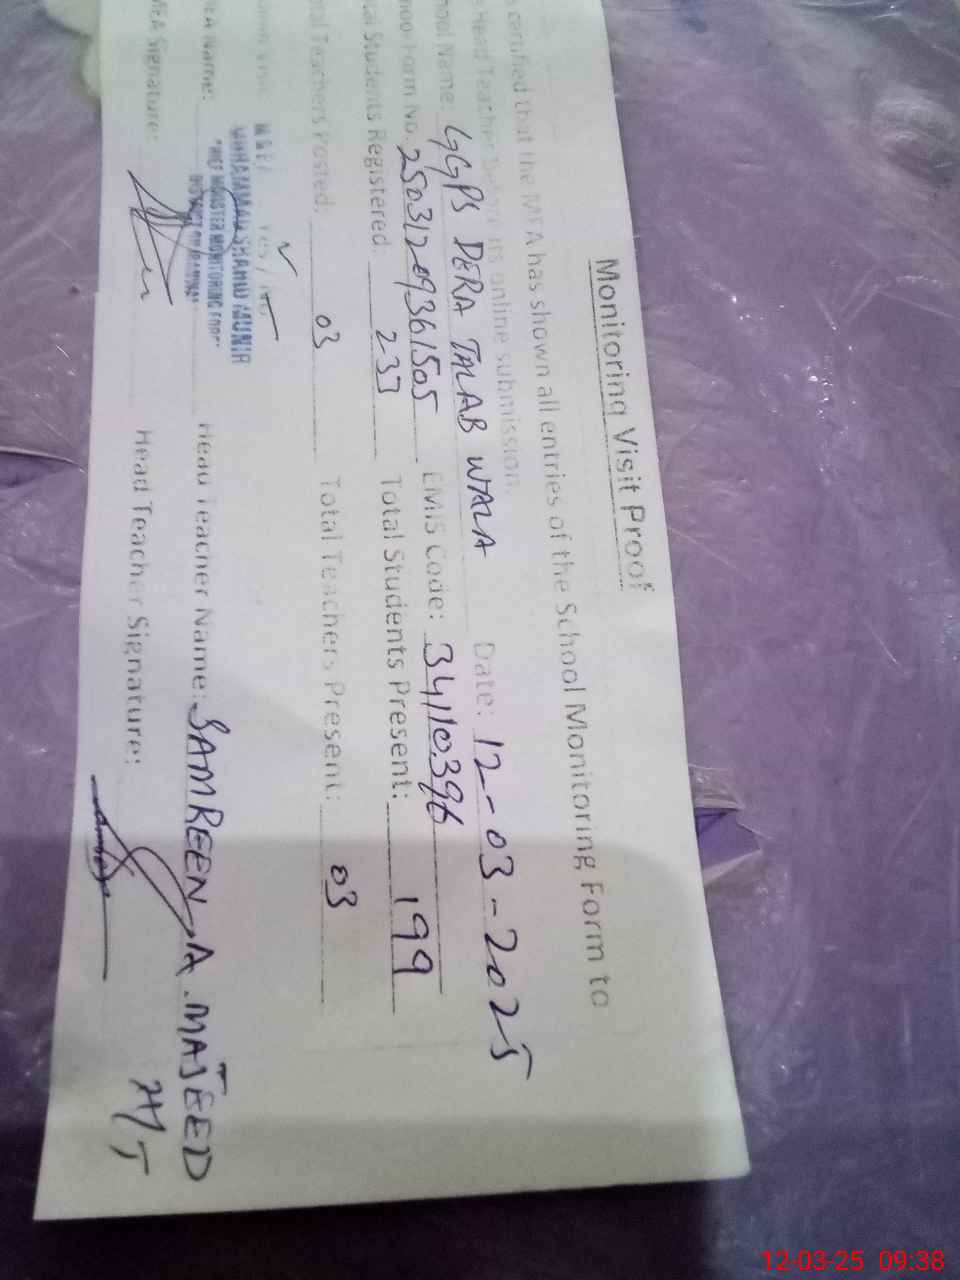 Monitoring Visit Proof
certified that the MEA has shown all entries of the School Monitoring Form to
Head Teacher before its online submission.
ool Name: GGPS DERA TALAB WALA Date: 12-03-2025
hool Form No. 25031209361505 EMIS Code: 34110396
al Students Registered: 237 Total Students Present: 199
tal Teachers Posted: 03 Total Teachers Present: 03
Yes / No
MUHAMMAD SHAHID MUNIR
CHIEF MINISTER MONITORING FORCE
EA Name: Head Teacher Name: SAMREEN A. MAJEED
MEA Signature: Head Teacher Signature: HT
12-03-25 09:38